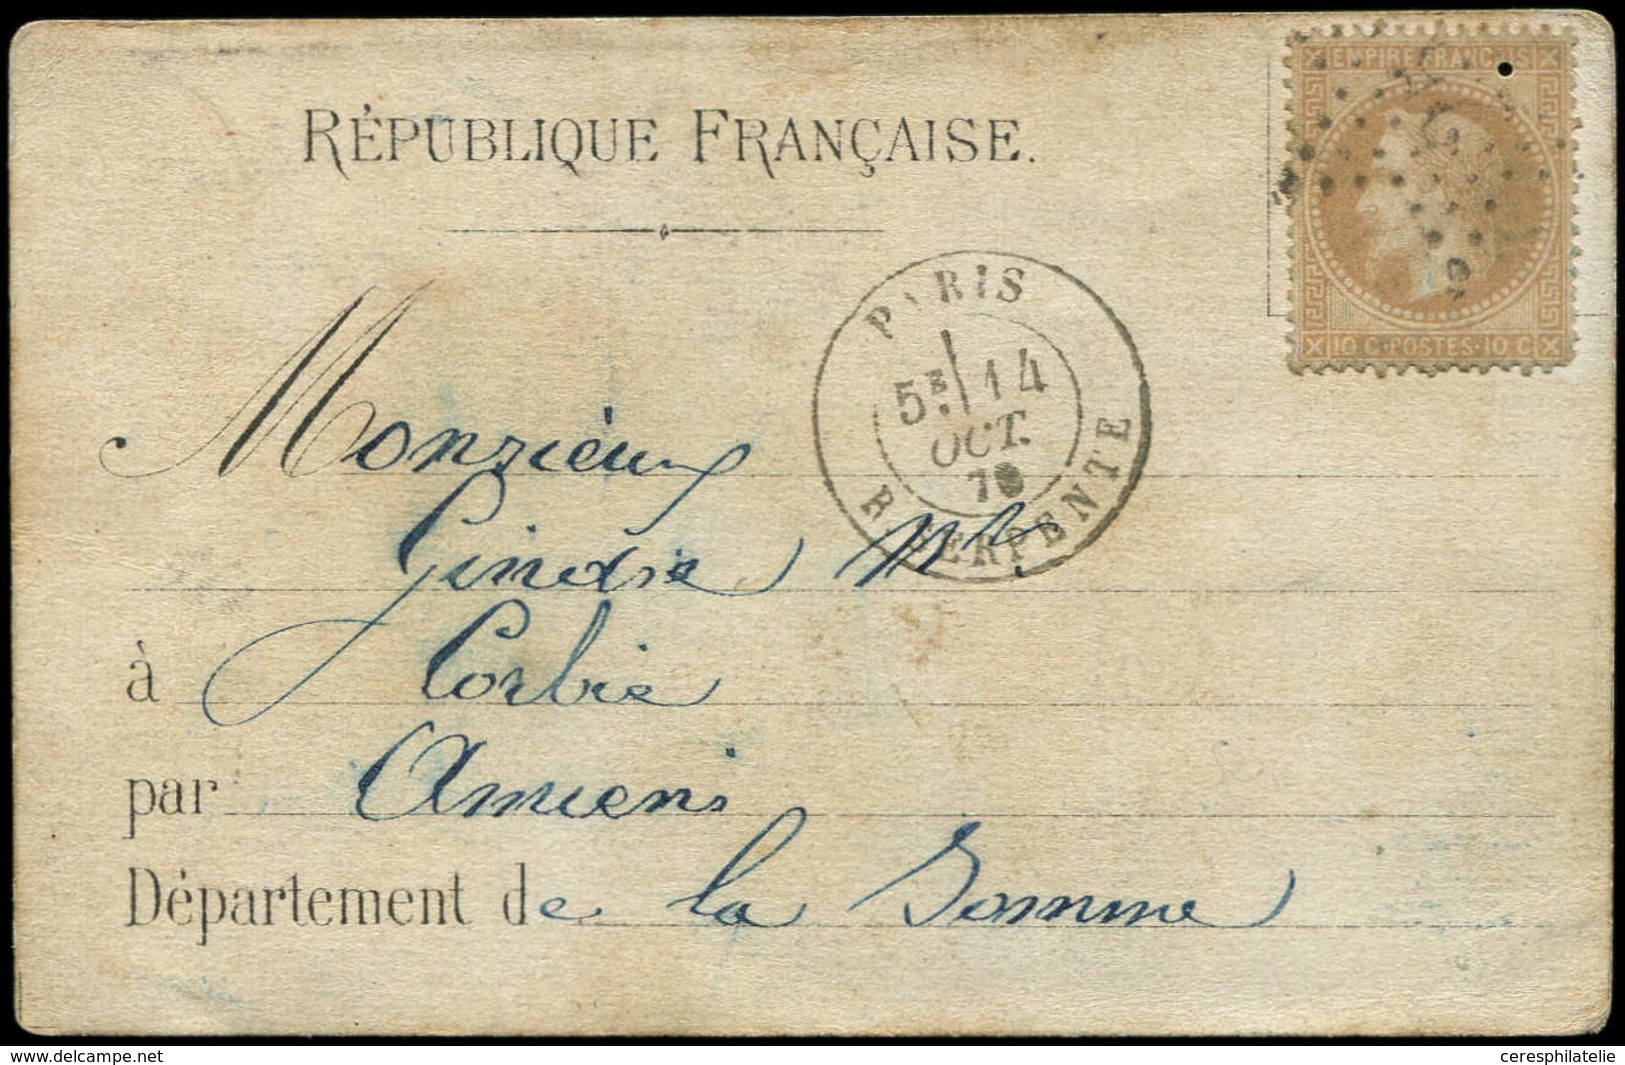 RÉPUBLIQUE FRANÇAISE.
EMPIRE FRANÇAIS
10 C·POSTES·10 C
PARIS
5E 14
OCT.
70
R. SERPENTE
Monsieur
Gendre Md
à Corbie
par Amiens
Département de la Somme
www.delcampe.net
ceresphilatelie